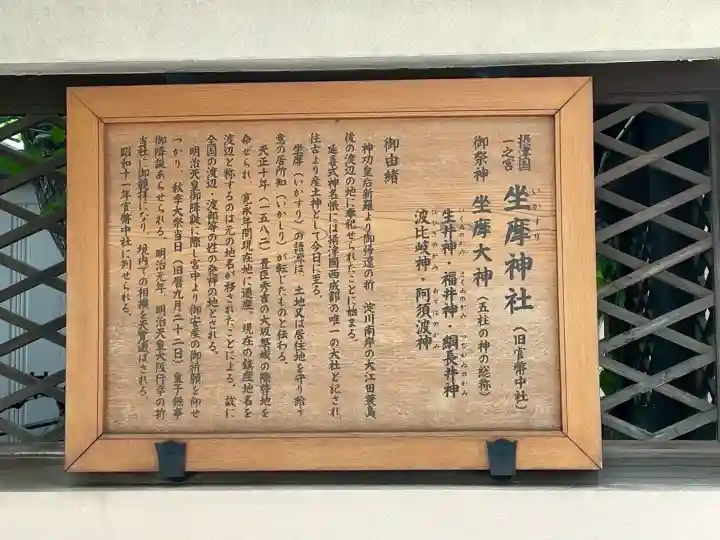 摂津国
一之宮
いかすり
坐摩神社
(旧官幣中社)
御祭神 坐摩大神(五社の神の総称)
生井神・福井神・綱長井神
波比岐神・阿須波神
御由緒
神功皇后新羅より御帰還の折、淀川南岸の大江田蓑島
後の渡辺の地に奉祀せられたことに始まる。
延喜式神名帳には摂津国西成郡の唯一の大社と記され
住古より産土神として今日に至る。
坐摩(いかすり)の語源は、土地又は居住地を守り給ふ
意の居所知(いかしり)が転じたものと伝わる。
天正十年(一五八二)豊臣秀吉の大坂築城の際替地を
命ぜられ、寛永年間現在地に遷座。現在の鎮座地名を
渡辺と称するのは元の地名が移されたことによる。故に
全国の渡辺・渡部等の姓の発祥の地とされる。
明治天皇御降誕に際し宮中より御安産の御祈願を仰せ
つかり、秋季大祭当日(旧暦九月二十二日)皇子無事
御降誕あらせられる。明治元年、明治天皇大阪行幸の折
当社に御親拝になり、境内での相撲を天覧遊ばされる。
昭和十一年官幣中社に列せられる。